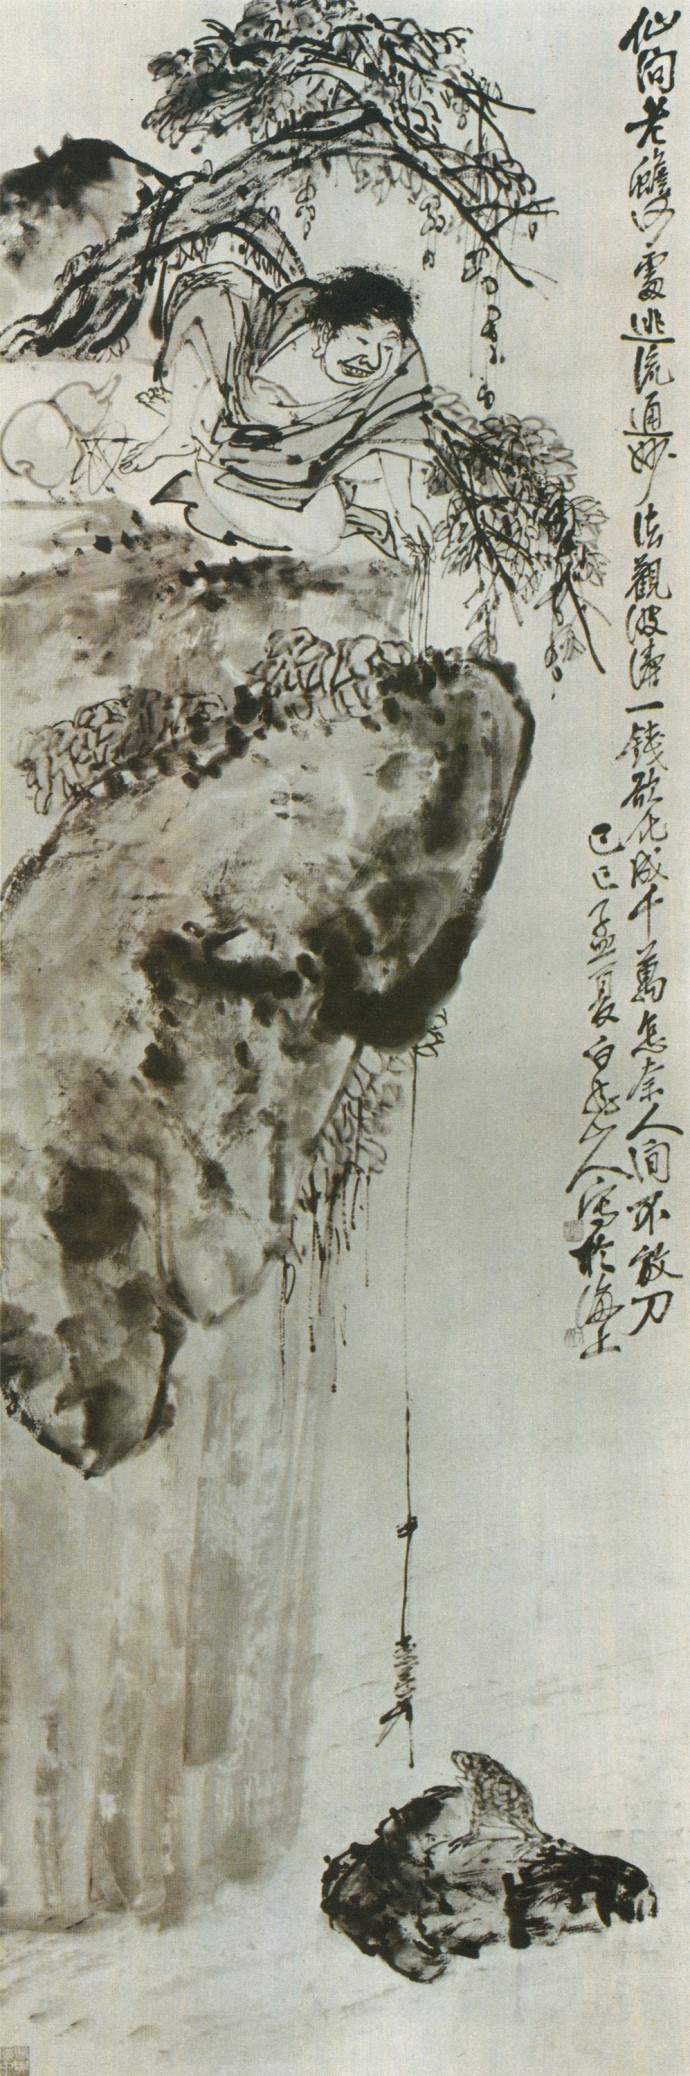 仙問老蟾何處逃流通妙法觀波濤一錢欲化成千萬怎奈人間不放刀
己巳孟夏白龍山人寫於海上